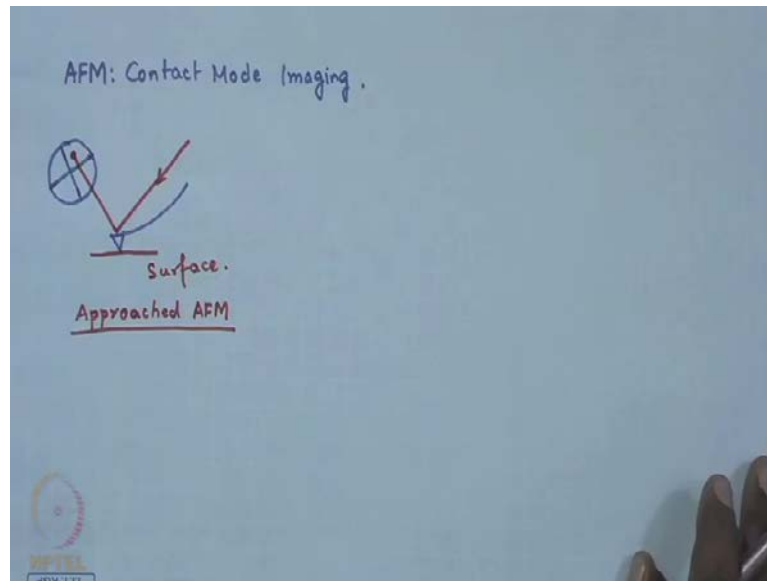 AFM: Contact Mode Imaging.
Surface.
Approached AFM
NPTEL